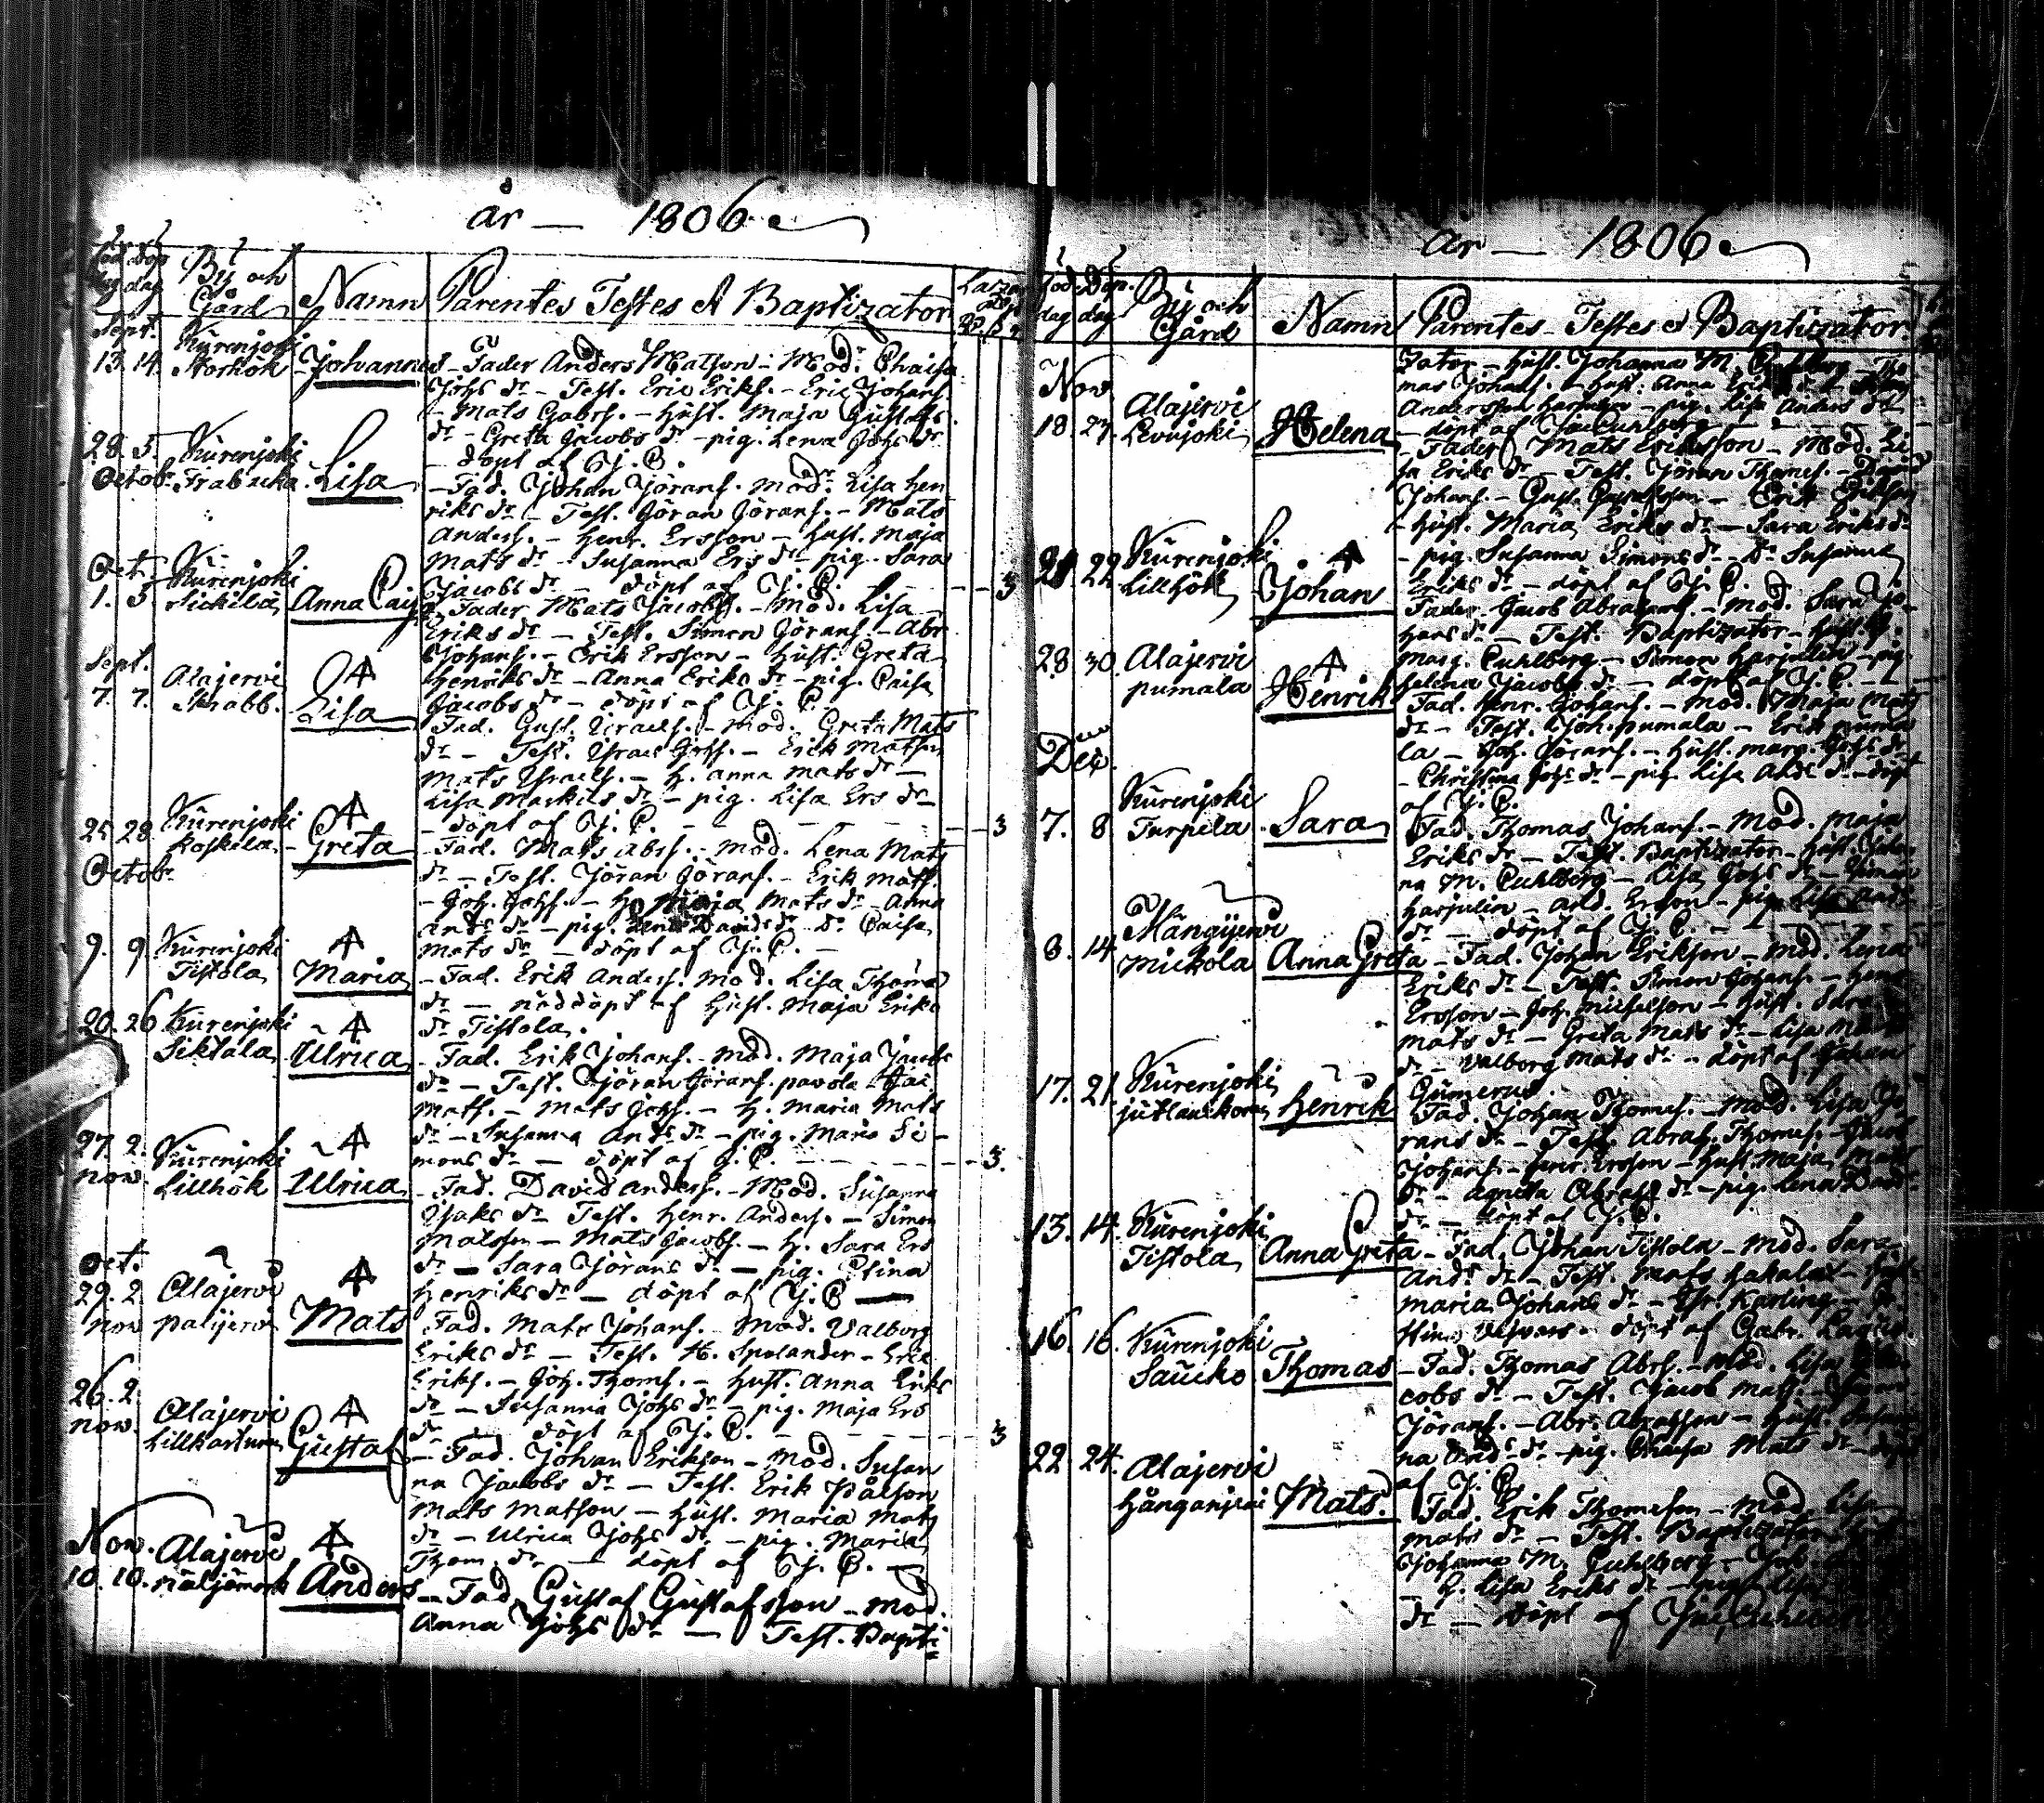 år — 1806
född döp
dag dag
By och
Gård
Namn
Parentes Testes et Baptizator
Sept.
13. 14.
Kurenjoki
Storhök
Johannes
- Fader Anders Matsson - Mod. Chaisa
Johs dr - Test. Eric Eriks. - Eric Johans.
- Mats Gabrs. - Hust. Maja Gustafs
dr - Greta Jacobs dr - pig. Lena Johs dr
- döpt af J. C.
28. 5.
Octob.
Kurenjoki
Frabacka
Lisa
- Fad. Johan Jörans. Mod. Lisa Hen
riks dr - Test. Göran Görans. - Mats
Anders. - Henr. Ersson - Hust. Maja
Mats dr - Susanna Ers dr - pig. Sara
Jacobs dr - döpt af J. C. - - 3
Oct.
1. 5.
Kurenjoki
Sickila
Anna Caisa
- Fader Mats Jacobs. - Mod. Lisa
Eriks dr - Test. Simon Görans. - Abr.
Johans. - Erik Ersson - Hust. Greta
Henriks dr - Anna Eriks dr - pig. Caisa
Jacobs dr - döpt af J. C.
Sept.
7. 7.
Alajervi
Knabb.
Lisa
Fad. Gust. Israels. - Mod. Greta Mats
dr - Test. Israel Johs. - Erik Matsson
Mats Israels. - H. Anna Mats dr -
Lisa Markus dr - pig. Lisa Ers dr
- döpt af J. C. - - 3
25. 28.
Kurenjoki
Koskela
Greta
- Fad. Mats Abrs. - Mod. Lena Mats
dr - Test. Jöran Görans. - Erik Mats.
- Joh. Johs. - H. Maja Mats dr - Anna
Ands dr - pig. Lena Davids dr Dr Caisa
Mats dr - döpt af J. C. -
Octob.
9. 9.
Kurenjoki
Tistola
Maria
- Fad. Erik Anders. Mod. Lisa Thoma
dr - nöddöpt af Hust. Maja Eriks
dr Tistola.
20. 26.
Kurenjoki
Siktala
Ulrica
- Fad. Erik Johans. - Mod. Maja Jacobs
dr - Test. Jöran Görans. pavola
Mats. - Mats Johs. - H. Maria Mats
dr - Susanna Ands dr - pig. Maria Si-
mons dr - döpt af J. C. - - 3.
27. 2.
nov.
Kurenjoki
Lillhök
Ulrica
- Fad. David Anders. - Mod. Susanna
Isaks dr - Test. Henr. Anders. - Simon
Matsson - Mats Jacobs. - H. Sara Ers
dr - Sara Jörans dr - pig. Stina
Henriks dr - döpt af J. C.
Oct.
29. 2.
nov
Alajervi
palijervi
Mats
Fad. Mats Johans. - Mod. Valborg
Eriks dr - Test. H. Spolander - Erik
Eriks. - Joh. Thoms. - Hust. Anna Eriks
dr - Susanna Johs dr - pig. Maja Ers
dr - döpt af J. C. - - 3
26. 2.
nov.
Alajervi
Lillkarhunen
Gustaf
- Fad. Johan Erikson - Mod. Susan
na Jacobs dr - Test. Erik Pålson
Mats Matson - Hust. Maria Mats
dr - Ulrica Johs dr - pig. Maria
Thom. dr - döpt af J. C. -
Nov.
10. 10.
Alajervi
Anders
- Fad. Gustaf Gustafsson - Mod.
Anna Johs dr - Test. Bapti
år — 1806
född Döp.
dag dag
By och
Gård
Namn
Parentes Testes et Baptizator
zator - Hust. Johanna M. Cuhlberg - Tho
mas Johans. - Hust. Anna Eriks dr -
Andersson Harjulin - pig. Lisa Anders dr
- döpt af Jac. Cuhlberg
Nov.
18. 23.
Alajervi
Levujoki
Helena
- Fader Mats Eriksson - Mod. Li
sa Eriks dr - Test. Jöran Thomes. - David
Johans. - Gust. Gustafsson - Erik Erikson
- Hust. Maria Eriks dr - Sara Eriks dr
- pig. Susanna Simons dr - Dr Susanna
Eriks dr - döpt af J. C.
21. 22.
Kurenjoki
Lillhök
Johan
Fader Jacob Abrahams. - Mod. Sara Jo-
hans dr - Test. Baptizator - Hust. J.
Marg. Cuhlberg - Simon Harjulin - pig.
Helena Jacobs dr - döpt af J. C. -
28. 30.
Alajervi
pumala
Henrik
Fad. Henr. Johans. - Mod. Maja Mats
dr - Test. Joh. pumala - Erik puma
la - Joh. Jörans. - Hust. Marg. Johs dr
- Christina Johs dr - pig. Lisa Ands dr - döpt
af J. C.
Dec.
7. 8.
Kurenjoki
Turpela
Sara
Fad. Thomas Johans. - Mod. Maja
Eriks dr - Test. Baptizator - Hust. Johan
na M. Cuhlberg - Lisa Johs dr - Simon
Harjulin - And. Ersson - pig. Lisa Ands
dr - döpt af J. C. -
8. 14.
Mickola
Anna Greta
- Fad. Johan Erikson - Mod. Lena
Eriks dr - Test. Simon Johans. - Henr.
Ersson - Joh. Michelson - Hust. Sara
Mats dr - Greta Mats dr - Lisa Mats
dr - Valborg Mats dr - döpt af Johan
Gumerus
17. 21.
Kurenjoki
Henrik
Fad. Johan Thomes. - Mod. Lisa Jö
rans dr - Test. Abrah. Thomes. - Jacob
Johans. - Henr. Ersson - Hust. Maja Mats
dr - Agneta Abrah. dr - pig. Lena David
dr - döpt af J. C.
13. 14.
Kurenjoki
Tistola
Anna Greta
- Fad. Johan Tistola - Mod. Sara
Ands dr - Test. Mats Hakala - Hust.
Maria Johans dr - Karling
döpt af Gabr. Lagus
16. 16.
Kurenjoki
Saucko
Thomas
- Fad. Thomas Abrs. - Mod. Lisa Ja-
cobs dr - Test. Jacob Mats. - Simon
Jörans. - Abr. Abrahsson - Hust. Susan
na Ands dr - pig. Chaisa Mats dr - döpt
af J. C.
22. 24.
Alajervi
Mats.
Fad. Erik Thomeson - Mod. Lisa
Mats dr - Test. Baptizator - Hust.
Johanna M. Cuhlberg - Joh.
- H. Lisa Eriks dr - pig. Lisa
dr - döpt af Jac. Cuhlberg